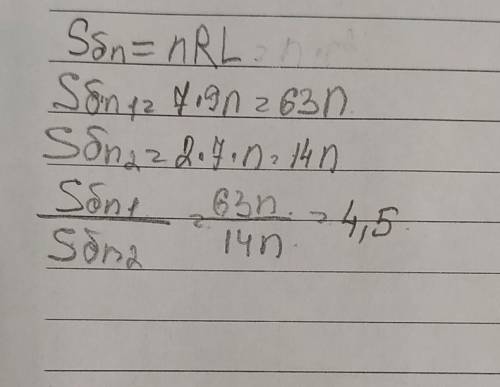 Sбп = пRL
Sбп1 = 7·9п = 63п
Sбп2 = 2·7·п = 14п
Sбп1 / Sбп2 = 63п / 14п = 4,5